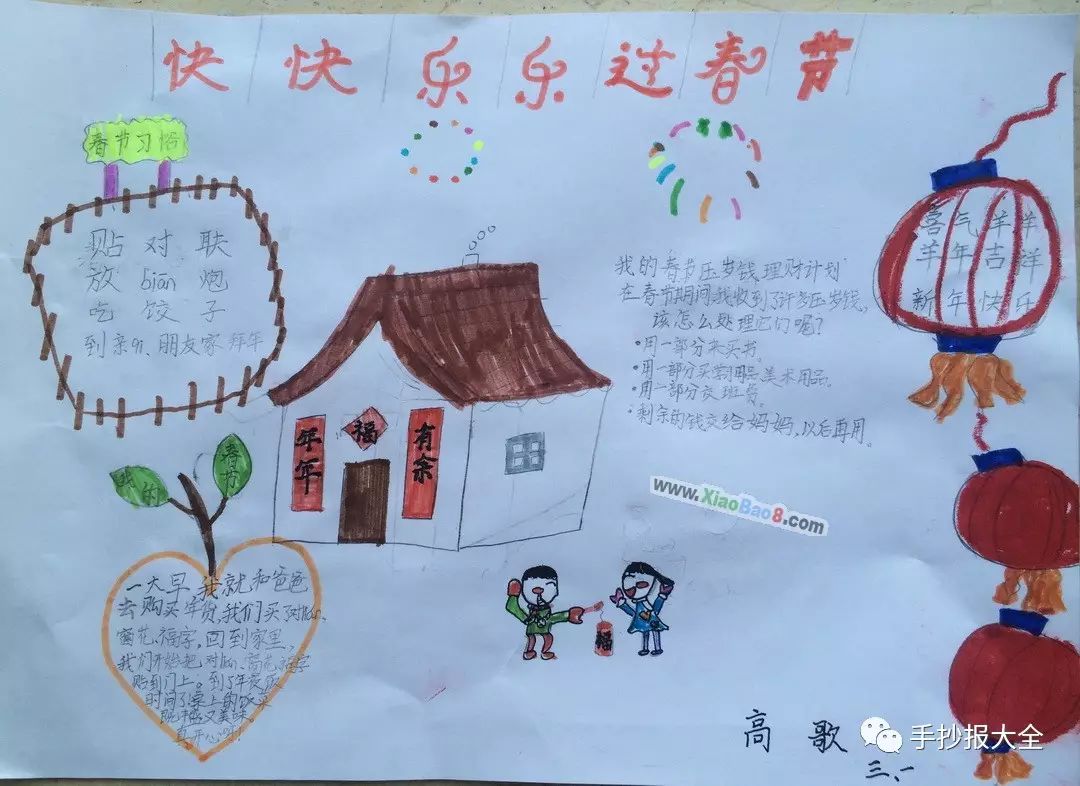 快快乐乐过春节
春节习俗
贴对联
放bian炮
吃饺子
到亲qi、朋友家拜年
喜气羊羊
羊年吉祥
新年快乐
我的春节压岁钱理财计划
在春节期间,我收到了许多压岁钱,
该怎么处理它们呢?
·用一部分来买书。
·用一部分买学习用品、美术用品。
·用一部分交班费。
·剩余的钱交给妈妈,以后再用。
年年
福
有余
我的
春节
一大早,我就和爸爸
去购买年货,我们买了对lian、
窗花、福字,回到家里,
我们开始把对lian、窗花、福字
贴到门上。到了年夜饭
时间了桌上的
又美味。
真开心呀!
福
www.XiaoBao8.com
高歌
三、一
手抄报大全